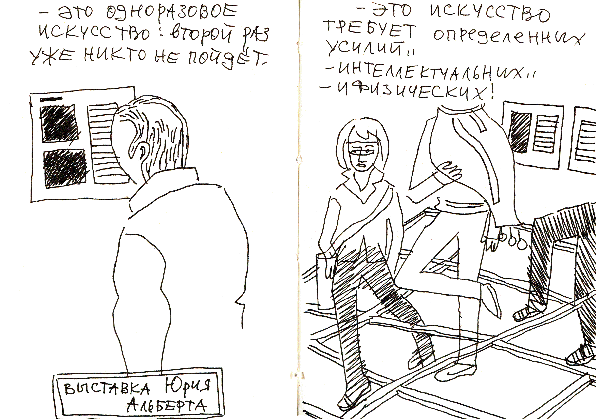 - ЭТО ОДНОРАЗОВОЕ
ИСКУССТВО: ВТОРОЙ РАЗ
УЖЕ НИКТО НЕ ПОЙДЕТ.
ВЫСТАВКА ЮРИЯ
АЛЬБЕРТА
- ЭТО ИСКУССТВО
ТРЕБУЕТ ОПРЕДЕЛЕННЫХ
УСИЛИЙ..
- ИНТЕЛЛЕКТУАЛЬНЫХ..
- И ФИЗИЧЕСКИХ!